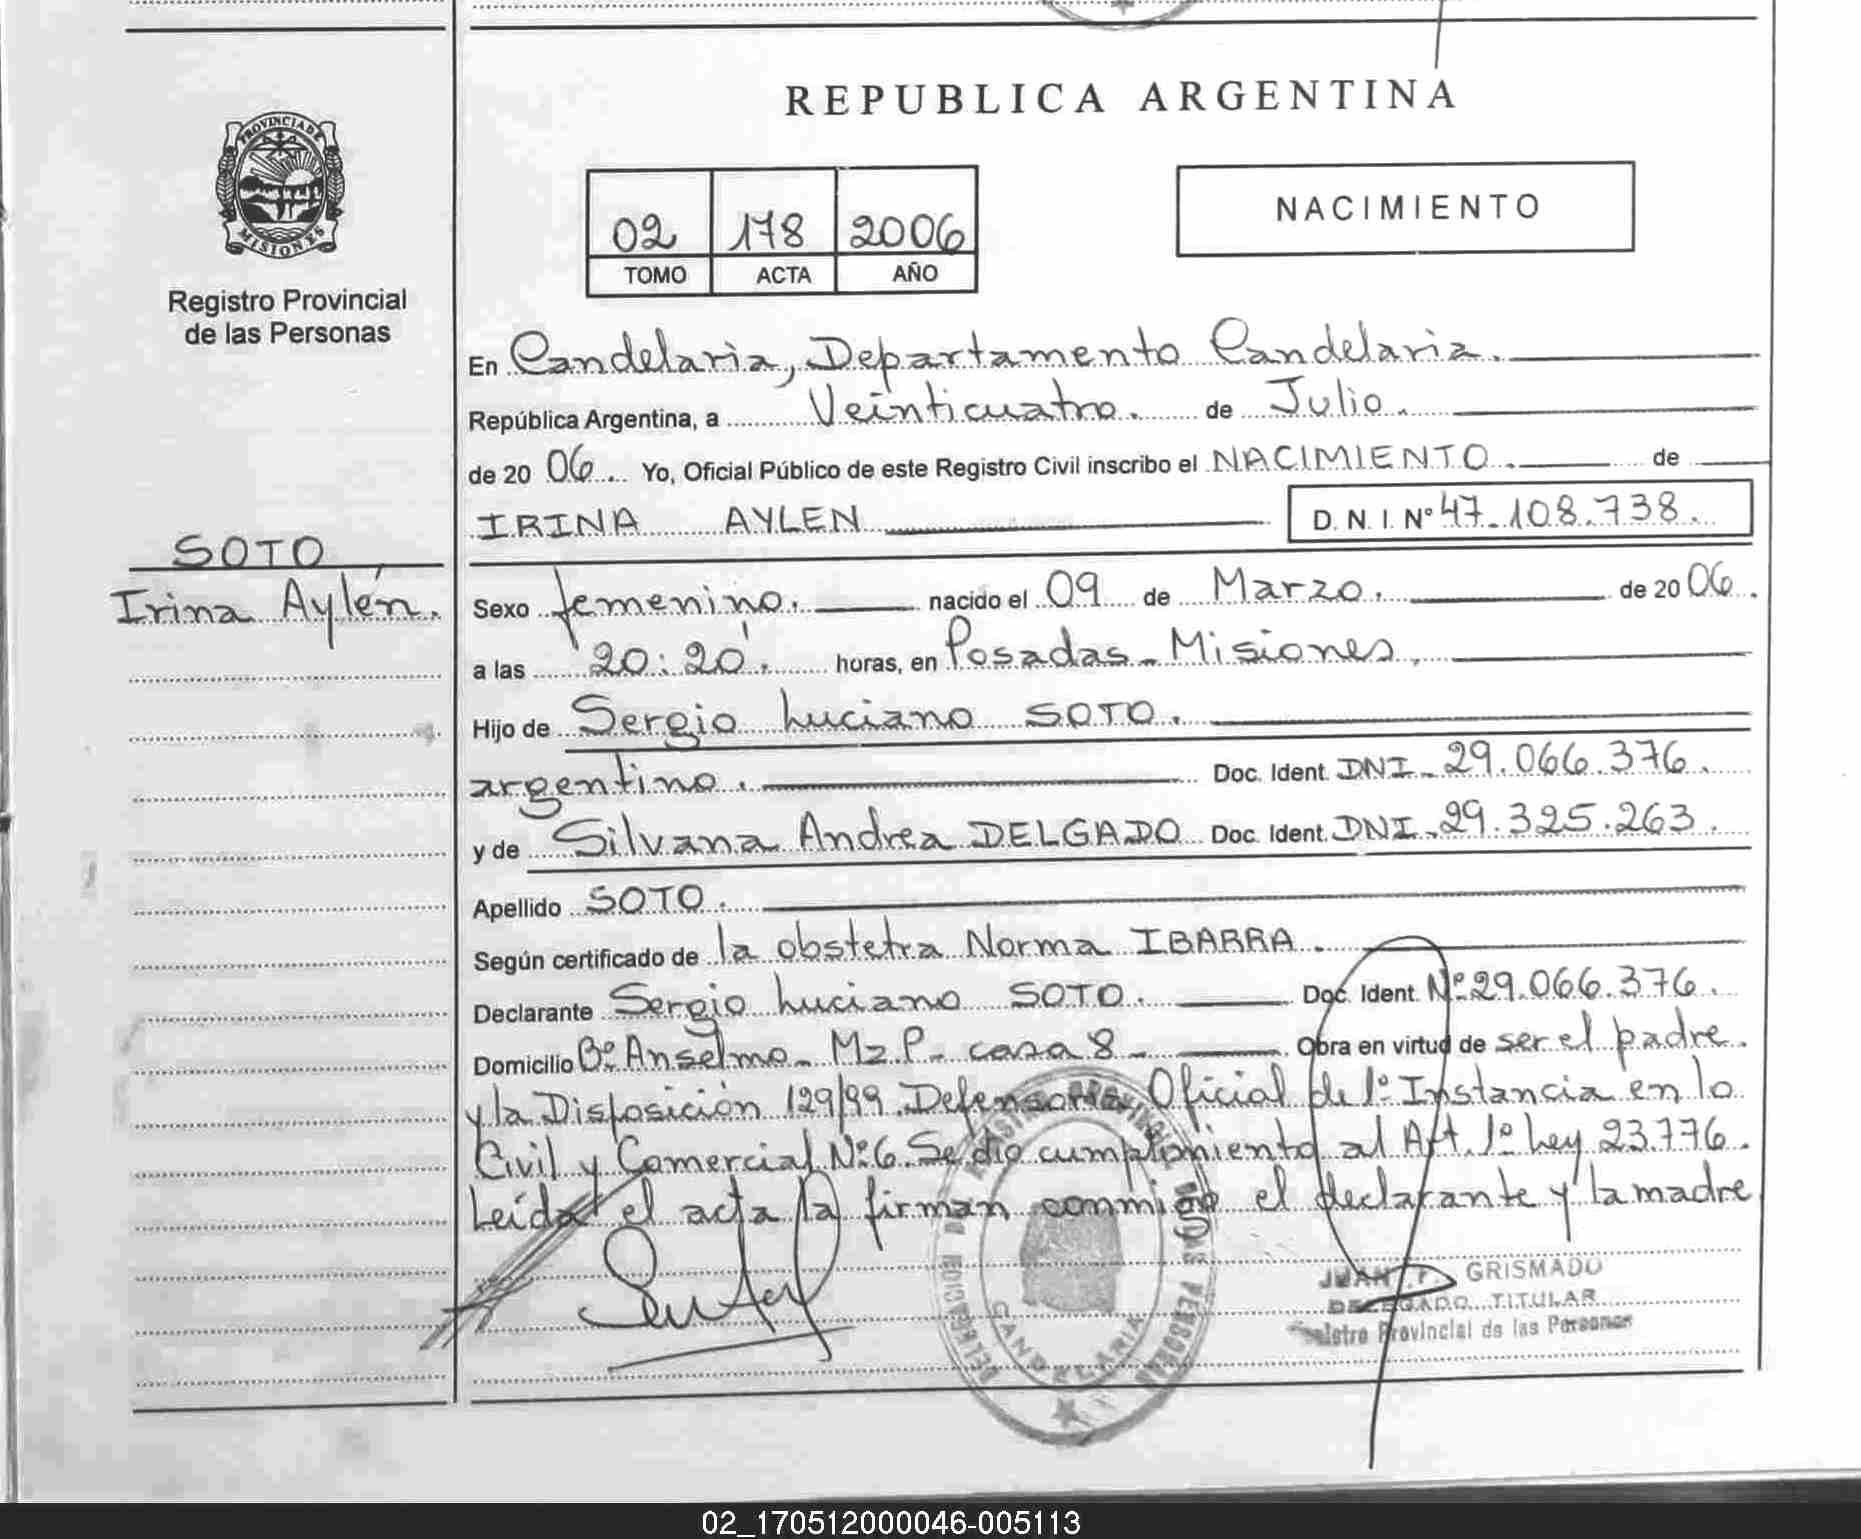 REPUBLICA ARGENTINA
PROVINCIA DE
MISIONES
Registro Provincial
de las Personas
02 178 2006
TOMO ACTA AÑO
NACIMIENTO
En Candelaria, Departamento Candelaria.
República Argentina, a Veinticuatro. de Julio.
de 20 06. Yo, Oficial Público de este Registro Civil inscribo el NACIMIENTO. de
IRINA AYLEN D. N. I. Nº 47.108.738.
SOTO
Irina Aylén.
Sexo femenino. nacido el 09 de Marzo. de 20 06.
a las 20:20'. horas, en Posadas - Misiones.
Hijo de Sergio Luciano SOTO.
argentino. Doc. Ident. DNI - 29.066.376.
y de Silvana Andrea DELGADO Doc. Ident. DNI - 29.325.263.
Apellido SOTO.
Según certificado de la obstetra Norma IBARRA.
Declarante Sergio Luciano SOTO. Doc. Ident. Nº 29.066.376.
Domicilio Bº Anselmo - Mz P - casa 8 - Obra en virtud de ser el padre
y la Disposición 129/99 Defensoría Oficial de 1º Instancia en lo
Civil y Comercial Nº 6. Se dio cumplimiento al Art. 1º Ley 23.776.
Leída el acta la firman conmigo el declarante y la madre
JUAN GRISMADO
DELEGADO TITULAR
Registro Provincial de las Personas
CANDELARIA
02_170512000046-005113